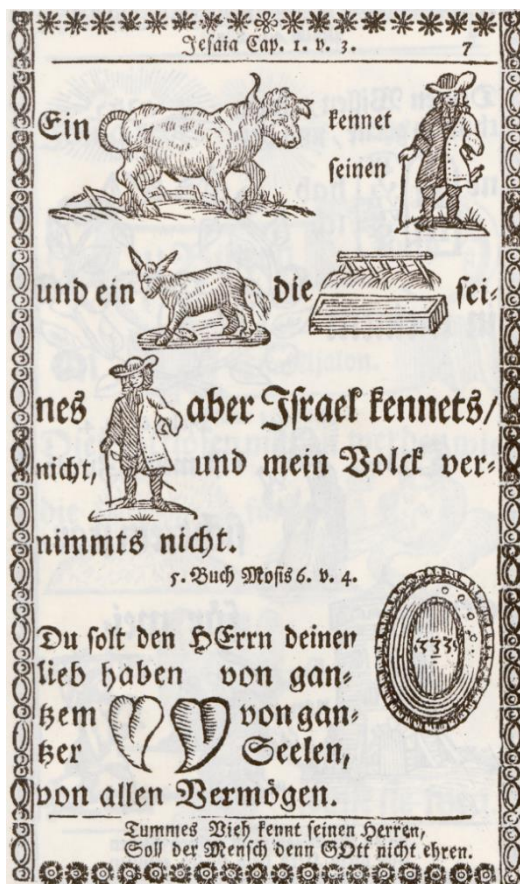 Jesaia Cap. 1. v. 3. 7
Ein kennet
seinen
und ein die sei⸗
nes aber Israel kennets/
nicht, und mein Volck ver⸗
nimmts nicht.
5. Buch Mosis 6. v. 4.
Du solt den HErrn deinen
lieb haben von gan⸗
tzem von gan⸗
tzer Seelen,
von allen Vermögen.
Tummes Vieh kennt seinen Herren,
Soll der Mensch denn GOtt nicht ehren.